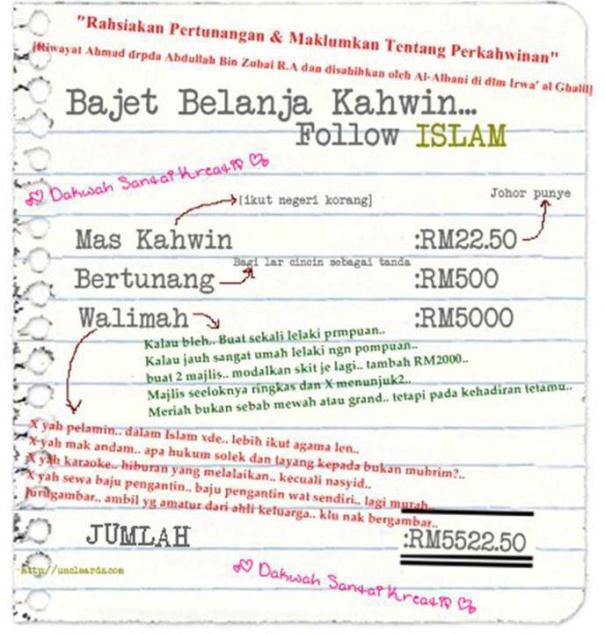 "Rahsiakan Pertunangan & Maklumkan Tentang Perkahwinan"
[Riwayat Ahmad drpda Abdullah Bin Zubai R.A dan disahihkan oleh Al-Albani di dlm Irwa' al Ghalil]
Bajet Belanja Kahwin...
Follow ISLAM
Dakwah Santai Kreatip
[ikut negeri korang]
Johor punye
Mas Kahwin :RM22.50
Bagi lar cincin sebagai tanda
Bertunang :RM500
Walimah :RM5000
Kalau bleh.. Buat sekali lelaki prmpuan..
Kalau jauh sangat umah lelaki ngn pompuan..
buat 2 majlis.. modalkan skit je lagi.. tambah RM2000..
Majlis seeloknya ringkas dan X menunjuk2..
Meriah bukan sebab mewah atau grand.. tetapi pada kehadiran tetamu..
X yah pelamin.. dalam Islam xde.. lebih ikut agama len..
X yah mak andam.. apa hukum solek dan tayang kepada bukan muhrim?..
X yah karaoke.. hiburan yang melalaikan.. kecuali nasyid..
X yah sewa baju pengantin.. baju pengantin wat sendiri.. lagi murah..
Jurugambar.. ambil yg amatur dari ahli keluarga.. klu nak bergambar..
JUMLAH :RM5522.50
http://unclearda.com
Dakwah Santai Kreatip